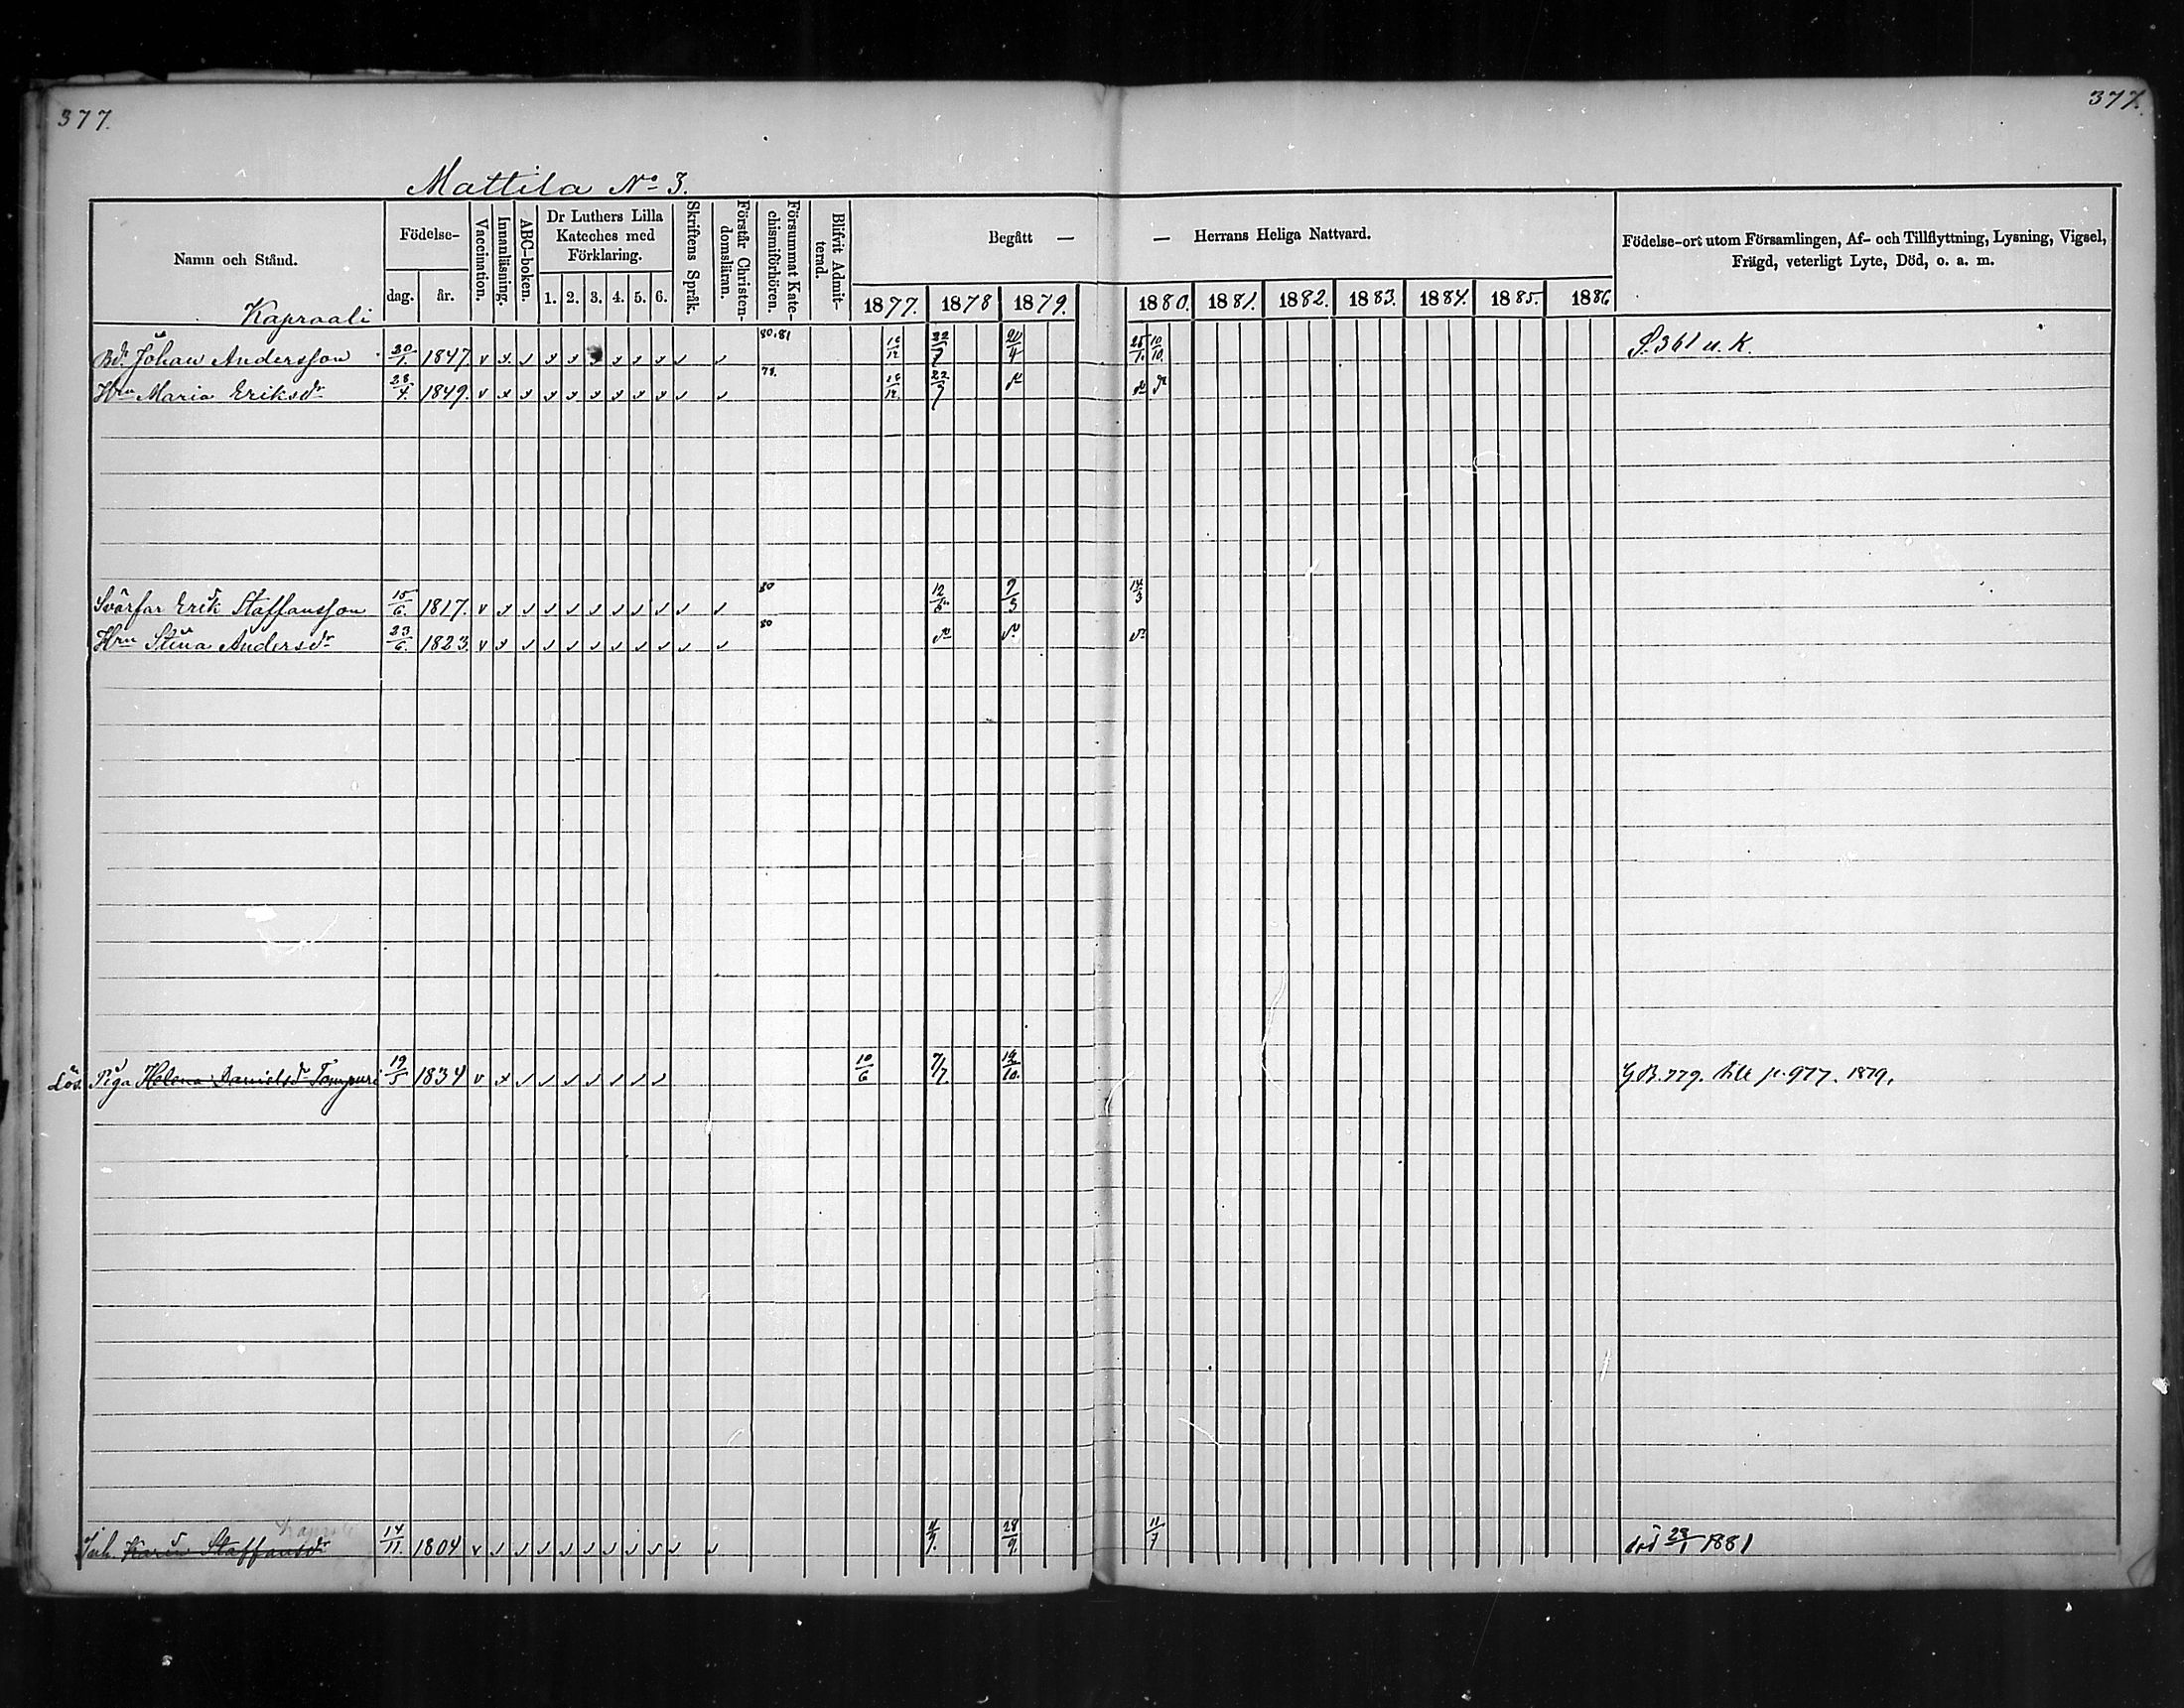 377.
377.
Mattila No 3.
Namn och Stånd.
Födelse-
dag.
år.
Vaccination.
Innanläsning.
ABC-boken.
Dr Luthers Lilla
Kateches med
Förklaring.
1. 2. 3. 4. 5. 6.
Skriftens Språk.
Förstår Christen-
domsläran.
Försummat Kate-
chismiförhören.
Blifvit Admit-
terad.
Begått — — Herrans Heliga Nattvard.
1877. 1878 1879. 1880. 1881. 1882. 1883. 1884. 1885. 1886
Födelse-ort utom Församlingen, Af- och Tillflyttning, Lysning, Vigsel,
Frägd, veterligt Lyte, Död, o. a. m.
Kapraali
Bd. Johan Andersson 30/1. 1847. v x v x x x x x x v v 80.81 22/7 20/4 25/1. 10/10. P. 361 u. K.
Hru Maria Eriksdr 28/4. 1849. v x x x x x x x x v v 78. 22/7 do do do
Svärfar Erik Staffansson 15/6. 1817. v x v v v v v v v v v 80 7/3 14/3
Hru Stina Andersdr 23/6. 1823. v x v v v v v v v v v 80 do do do
Lös. Piga Helena Danielsdr Tampuri 19/5 1834 v x v v v v v v v 10/6 7/7. 12/10. G.B. 779. till p. 977. 1879.
Inh. Karin Staffansdr 14/11. 1804 v v v v v v v v v v v 4/7. 28/9. 11/7 död 23/1 1881